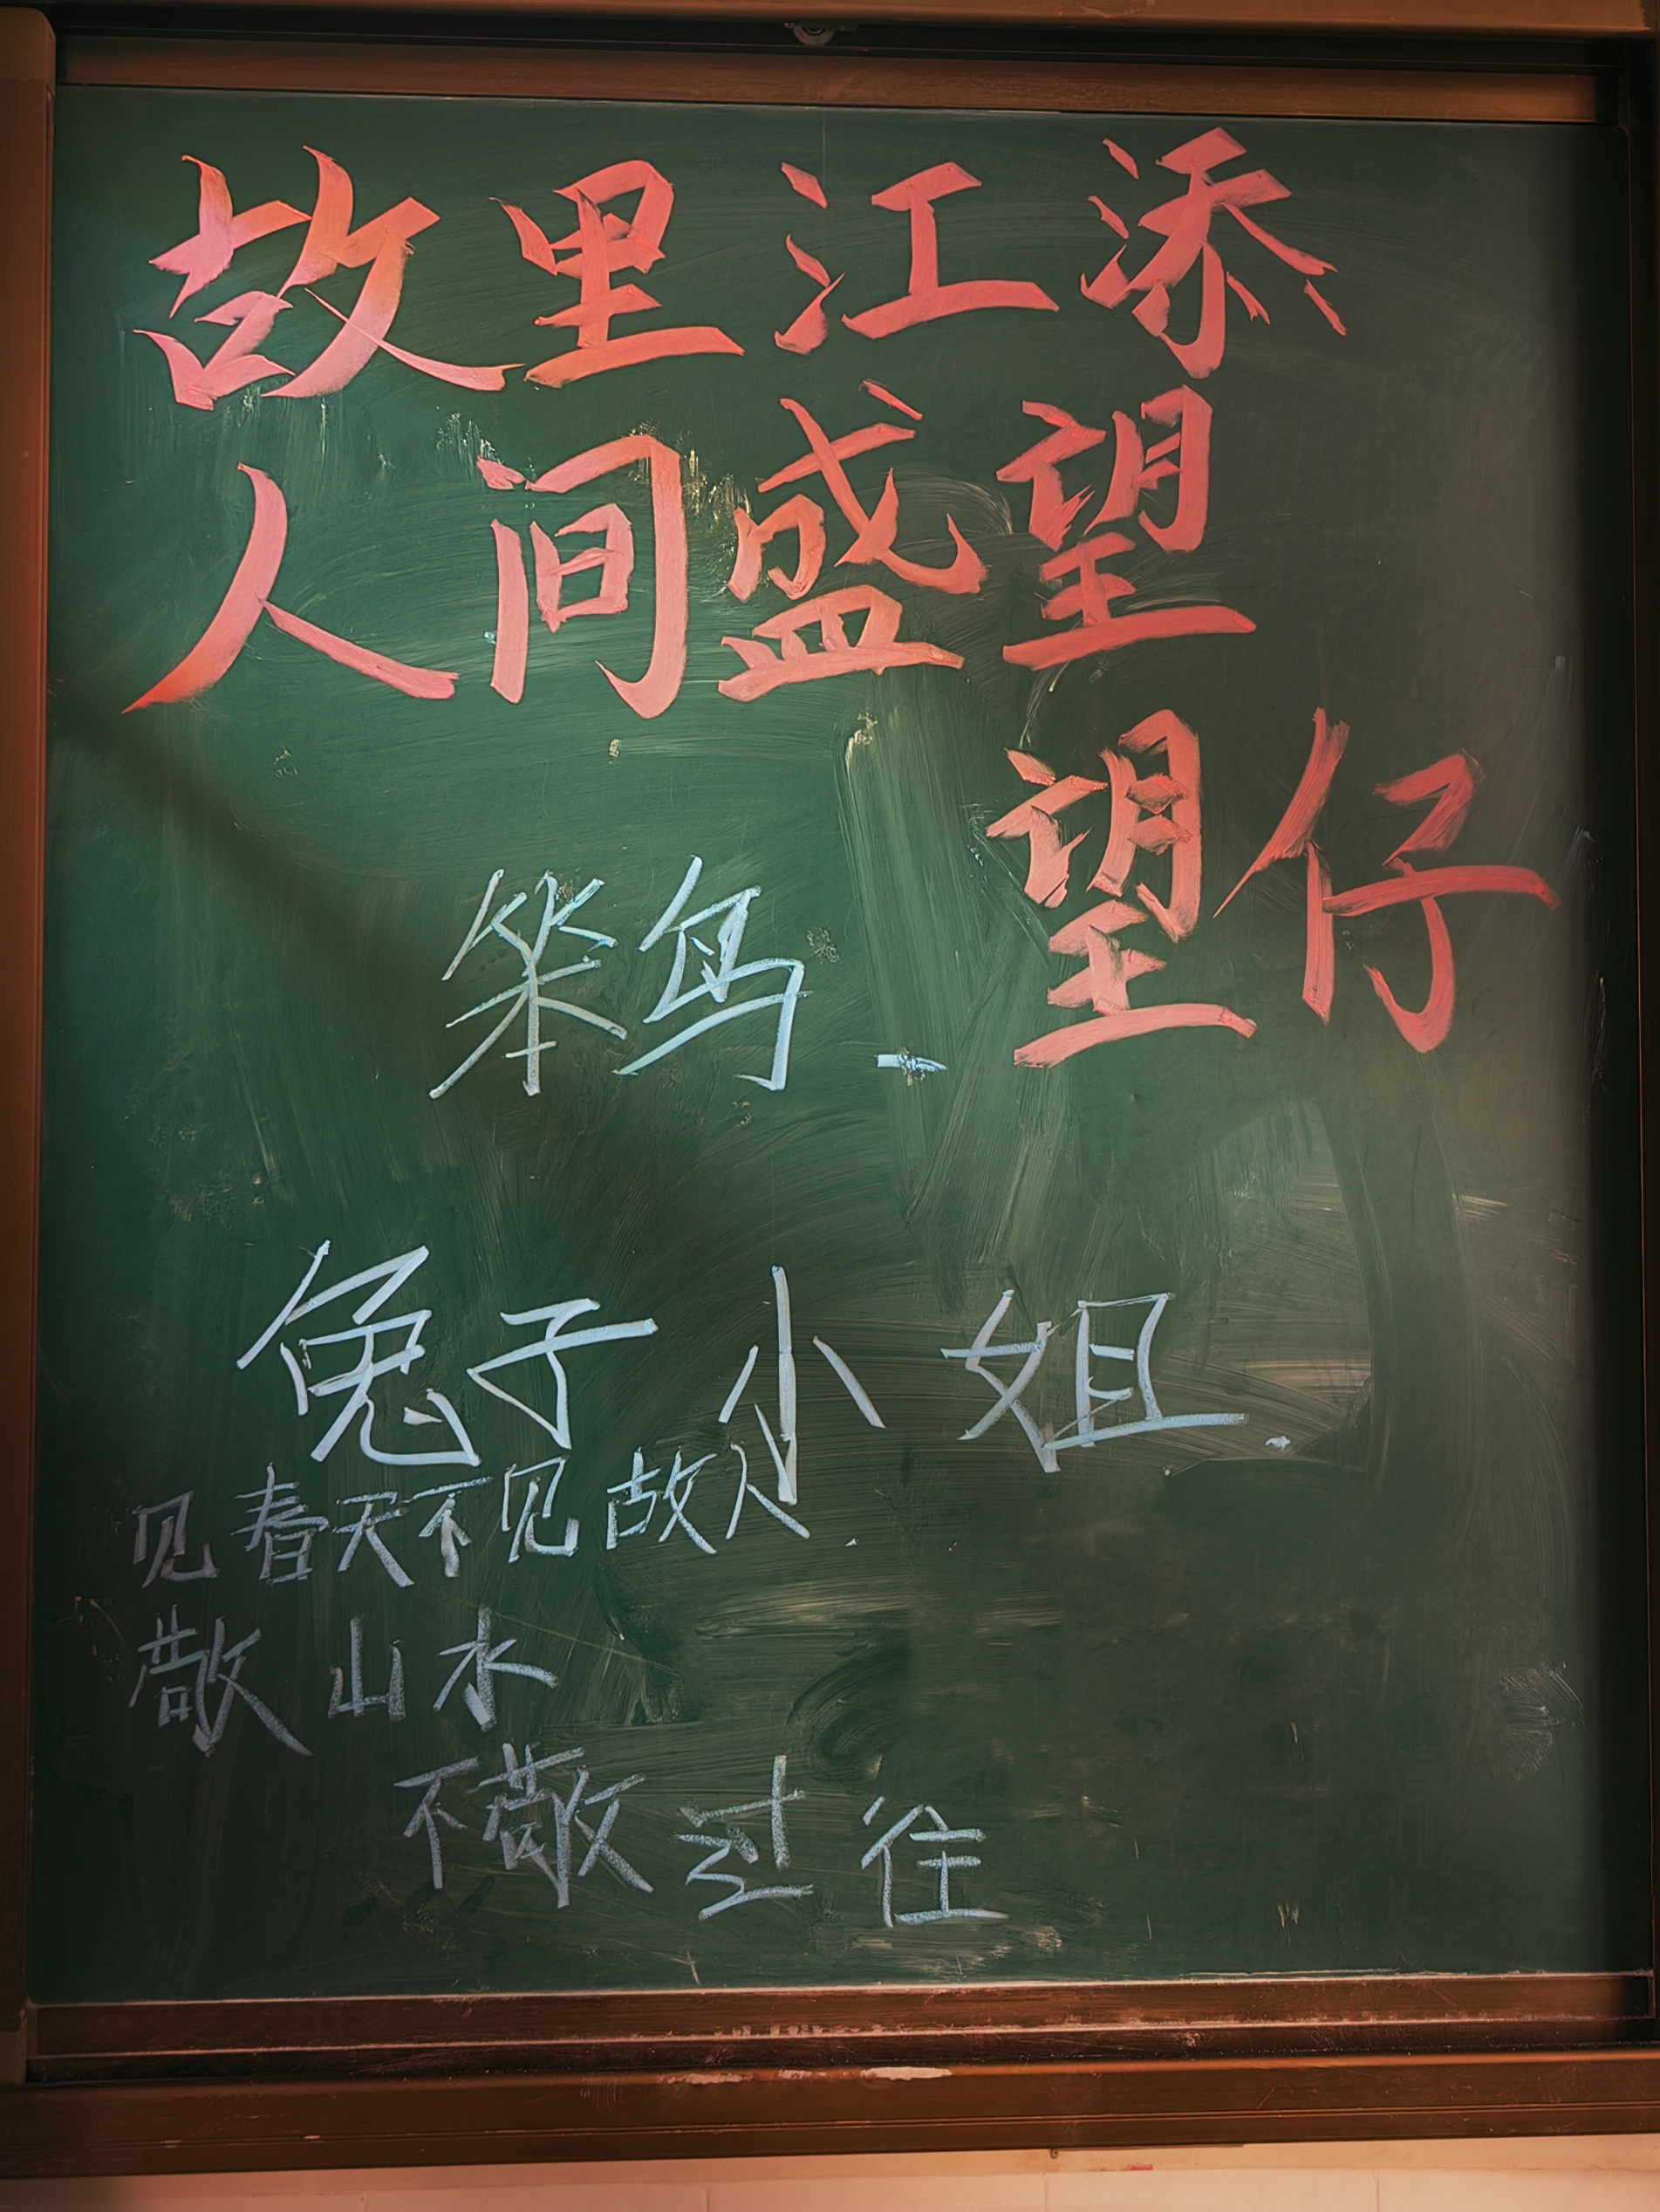 故里江添
人间盛望
望仔
笨鸟
兔子小姐.
见春天不见故人.
敬山水
不敬过往